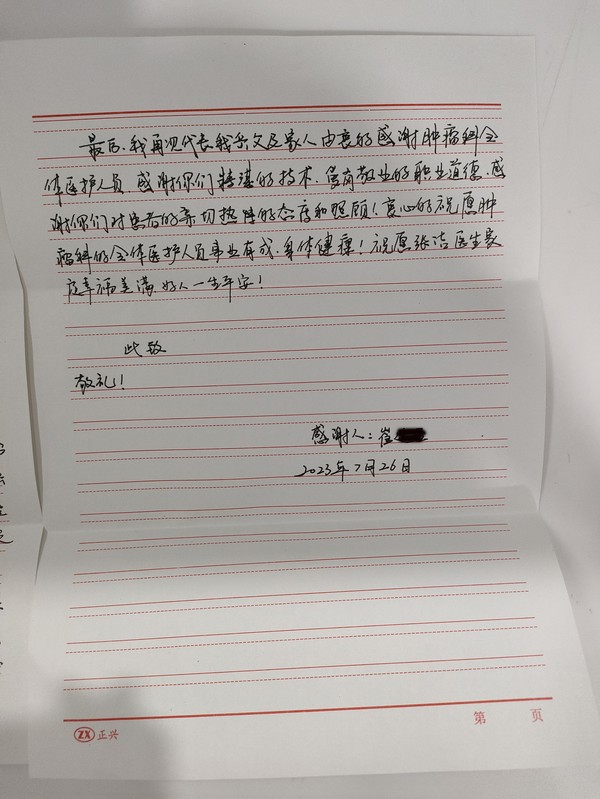 最后,我再次代表我岳父及家人由衷的感谢肿瘤科全
体医护人员,感谢你们精湛的技术,具有敬业的职业道德,感
谢你们对患者的亲切热情的态度和照顾!衷心的祝愿肿
瘤科的全体医护人员事业有成,身体健康!祝愿张洁医生家
庭幸福美满,好人一生平安!
此致
敬礼!
感谢人:崔
2023年7月26日
ZX 正兴
第 页